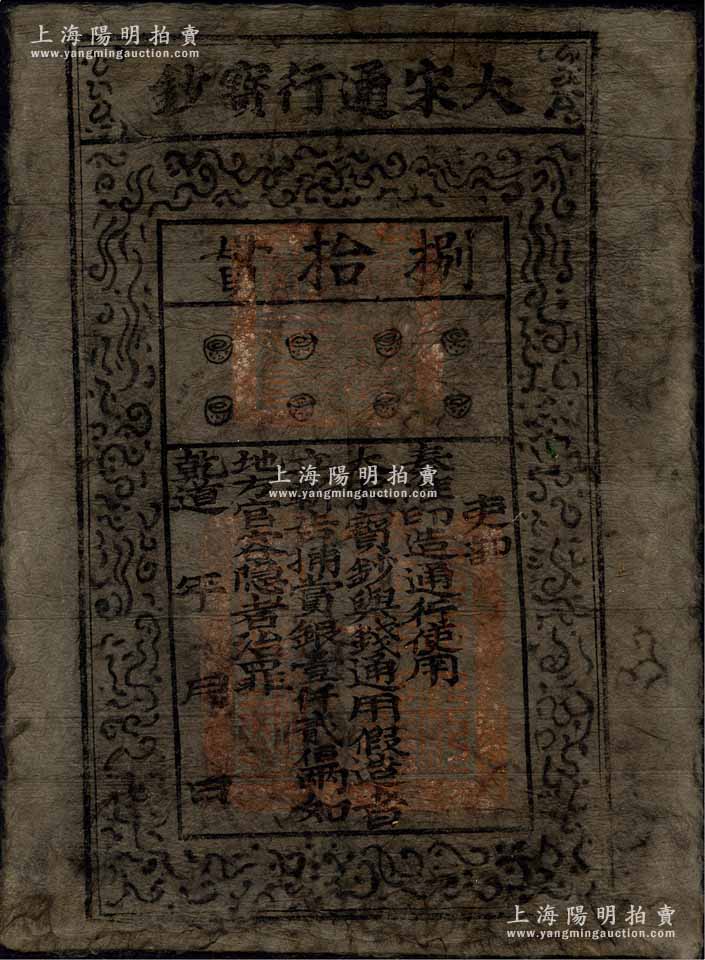 上海陽明拍賣
www.yangmingauction.com
大宋通行寶鈔
捌拾
吏部
奏 造通行使用
寶鈔與錢通用假造者
告捕賞銀壹仟貳佰兩如
地方官容隱者治罪
乾道 年 月 日
上海陽明拍賣
www.yangmingauction.com
上海陽明拍賣
www.yangmingauction.com